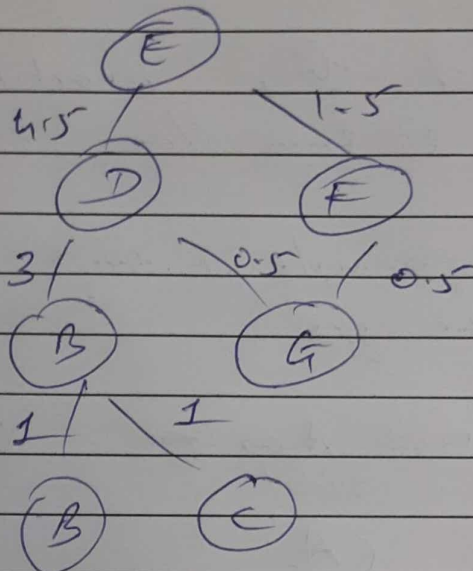 E
4.5 1-5
D F
3 0.5 0.5
B G
1 1
B C